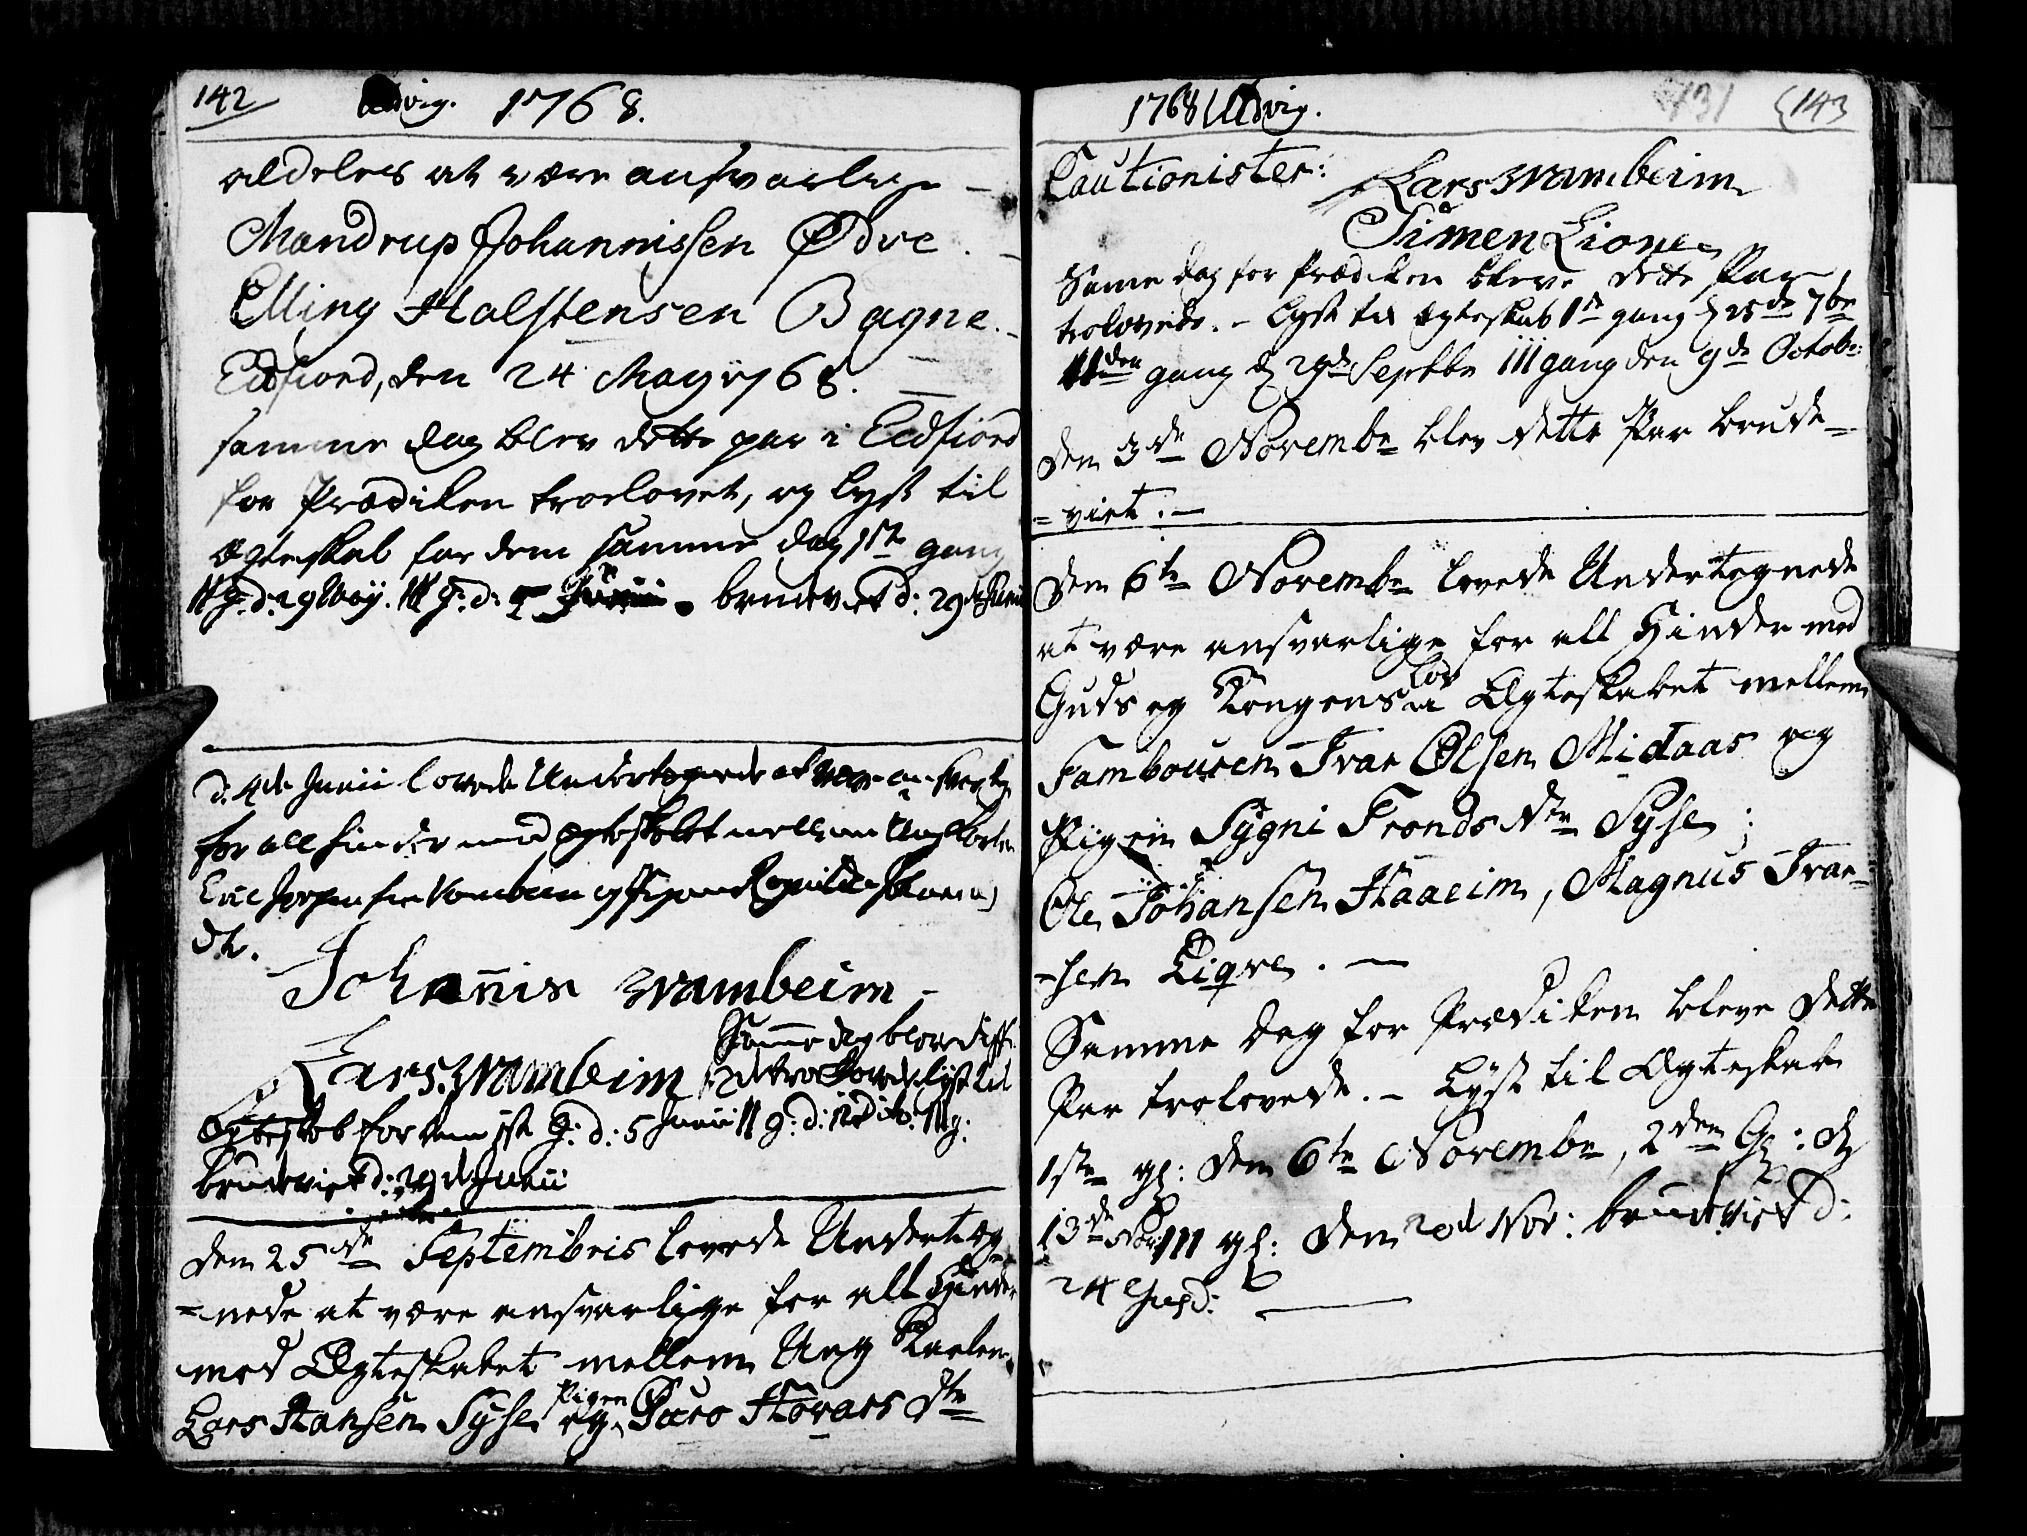 142 Udvig. 1768.
aldeles at være ansvarlige –
Mandrup Johannissen Ødve.
Elling Halstensen Bagne.
Eidfiord, den 24 Maÿ 1768.
samme dag blev dette par i Eidfiord
for Prædiken troelovet, og lyst til
Ægteskab for dem samme dag 1ste gang
II g. d: 29 Maÿ. III g: d: 5 Junii. brudeviet d: 29de Junii
d. 4de Junii lovede Undertegnede at være ansvarlig
for all hinder med Ægteskabet mellem Ung Karlen
Eric Vambeim og Pigen
Dtr.
Johannis Wambeim
Lars Wambeim
Samme dag blev disse
2de trolovede lyst til
Ægteskab for dem 1ste G: d: 5 Junii II g: d: 12 dito. III g:
brudeviet d: 29de Junii
Den 25de Septembris lovede Underteg
=nede at være ansvarlige for all Hinder
med Ægteskabet mellem Ung Karlen
Lars Hansen Syse og Pigen Guro Hovars Dtr
1768 Udvig. 131 143
Cautionister: Lars Wambeim
Simen Lione
Same dag for Prædiken bleve dette Par
trolovede. – Lyst til Ægteskab 1ste gang d 25de 7br
IIden gang d 29de Septbr III gang den 9de Octobr:
Den 3de Novembr blev dette Par brude=
=viet. –
Den 6te Novembr lovede Undertegnede
at være ansvarlige for all Hinder med
Guds og Kongens Lov a Ægteskabet mellem
Tambouren Ivar Olsen Midaas og
Pigen Sygni Tronds Dtr Syse;
Ole Johansen Haaeim, Magnus Ivar=
=sen Liqve. –
Samme Dag for Prædiken bleve dette
Par trolovede. – Lyst til Ægteskab
1ste gg: den 6te Novembr, 2den Gg: d
13de Nov: III gg: den 20d Nov: brudeviet d:
24 Ejusd: